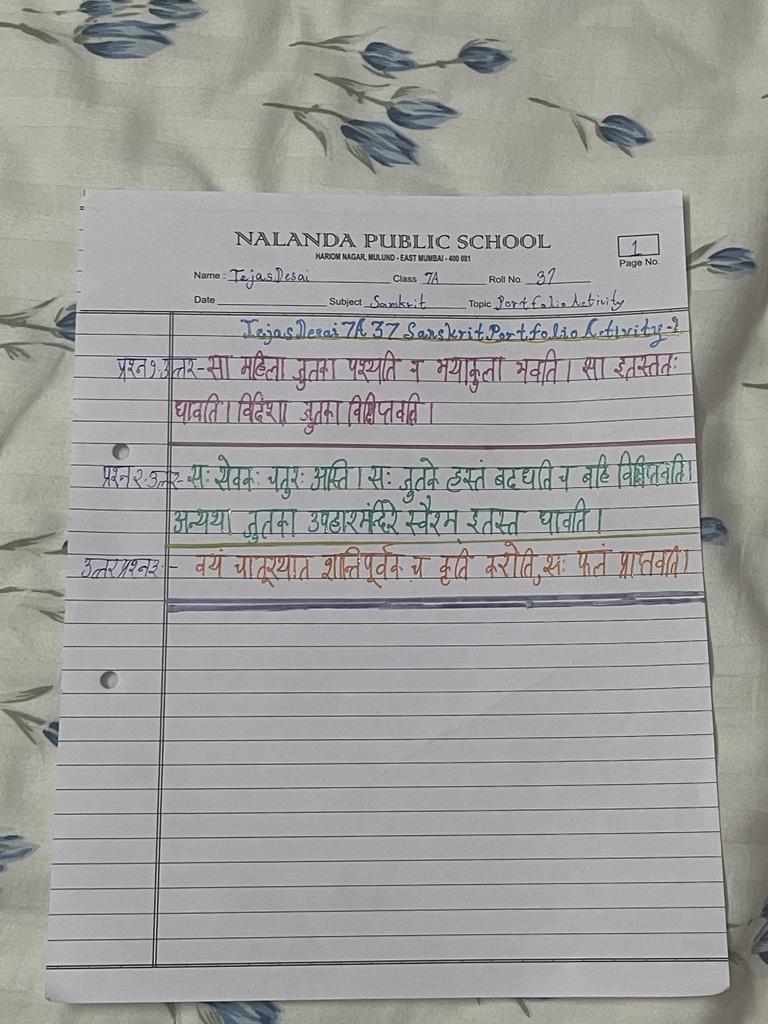 NALANDA PUBLIC SCHOOL
1
HARIOM NAGAR, MULUND - EAST MUMBAI - 400 081
Page No.
Name : Tejas Desai Class 7A Roll No. 37
Date Subject Sanskrit Topic Portfolio Activity
Tejas Desai 7A 37 Sanskrit Portfolio Activity-2
प्रश्न१.उत्तर - सा महिला जुतका पश्यति च भयाकुला भवति । सा इतस्ततः
धावति । विदेशा जुतका विक्षिप्तवति ।
प्रश्न२.उत्तर - सः सेवकः चतुरः अस्ति । सः जुतके हस्तं बदधति च बहि विक्षिप्तवति ।
अन्यथा जुतका उपहारमंन्दिरे स्वैरम इतस्त धावति ।
उत्तरप्रश्न३ - वयं चातूरयात शान्तिपूर्वक च कृति करोति, सः फलं प्राप्तवति ।